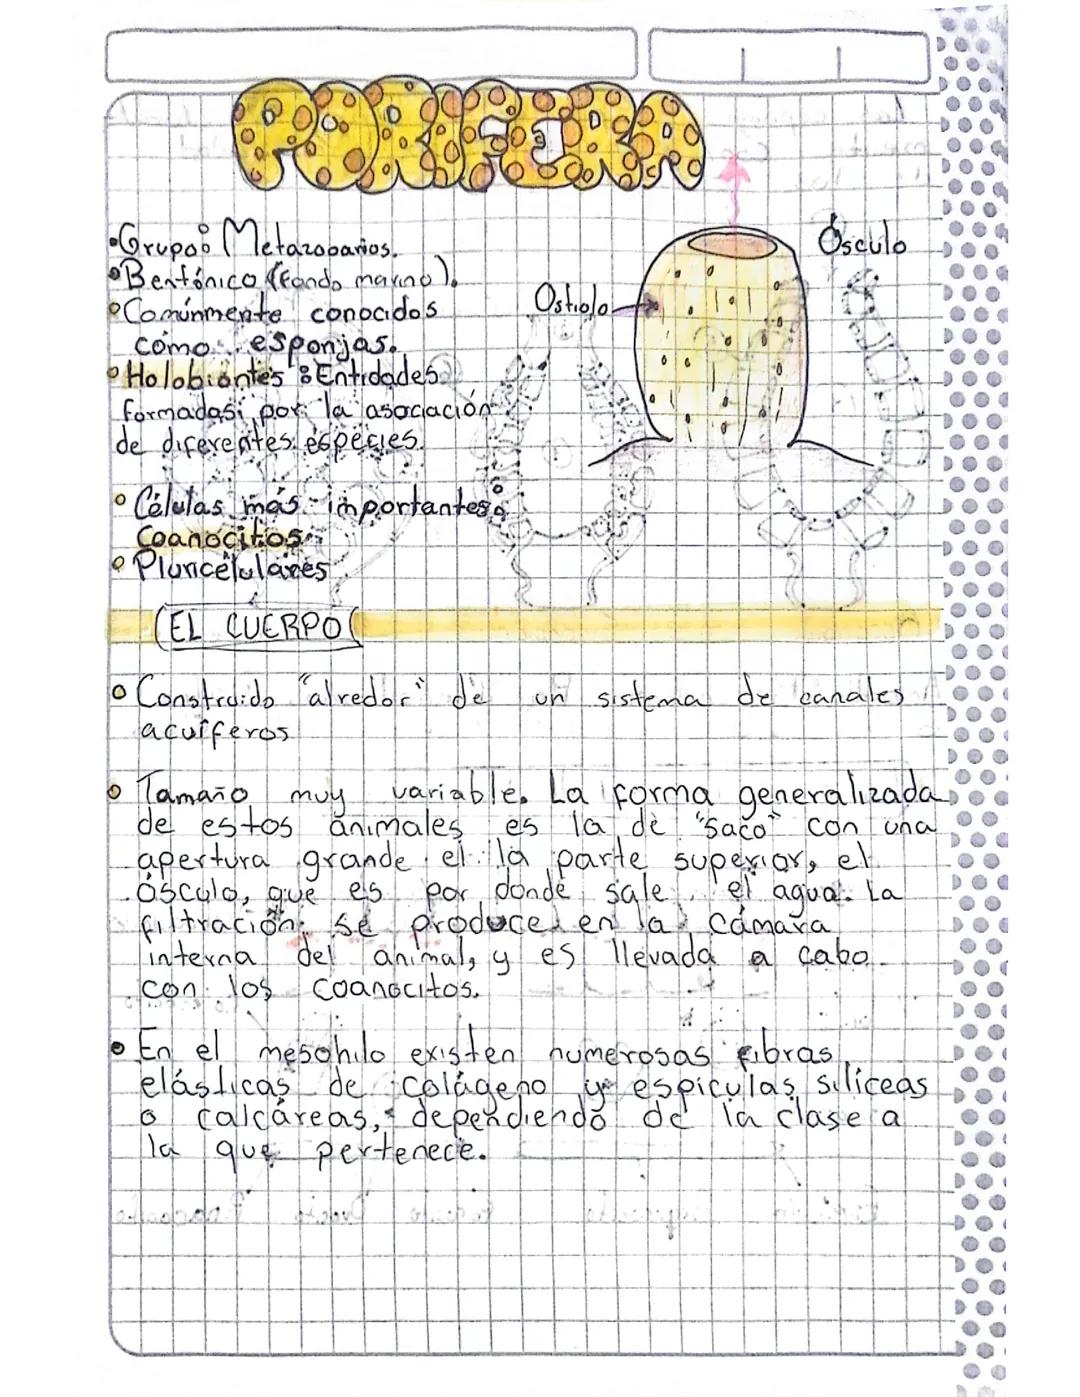 PORIFERA
•Grupo: Metazooarios.
•Bentónico (fondo marino).
•Comúnmente conocidos
cómo esponjas.
•Holobiontes: Entidades
formadas por la asociación
de diferentes especies.
•Células más importantes:
Coanocitos
•Pluricelulares
Ostiolo
Ósculo
EL CUERPO
•Construido "alredor" de un sistema de canales
acuíferos
•Tamaño muy variable. La forma generalizada
de estos animales es la de "saco" con una
apertura grande el la parte superior, el
ósculo, que es por donde sale el agua. La
filtración se produce en la cámara
interna del animal, y es llevada a cabo
con los coanocitos.
•En el mesohilo existen numerosas fibras
elásticas de colágeno y espiculas silíceas
o calcáreas, dependiendo de la clase a
la que pertenece.